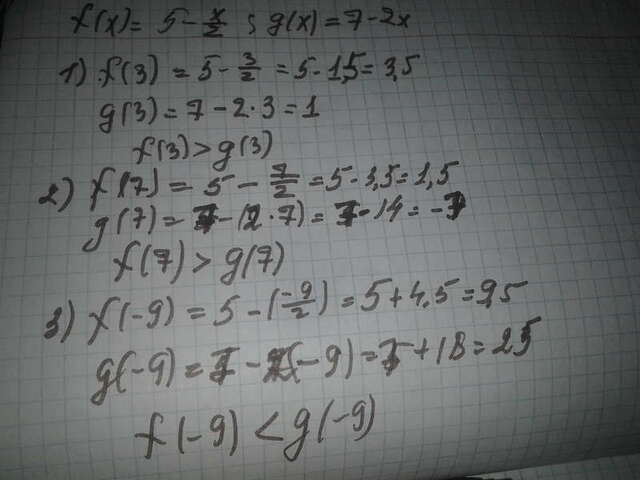 f(x) = 5 - x/2 ; g(x) = 7 - 2x
1) f(3) = 5 - 3/2 = 5 - 1,5 = 3,5
g(3) = 7 - 2·3 = 1
f(3) > g(3)
2) f(7) = 5 - 7/2 = 5 - 3,5 = 1,5
g(7) = 7 - (2·7) = 7 - 14 = -7
f(7) > g(7)
3) f(-9) = 5 - (-9/2) = 5 + 4,5 = 9,5
g(-9) = 7 - 2(-9) = 7 + 18 = 25
f(-9) < g(-9)